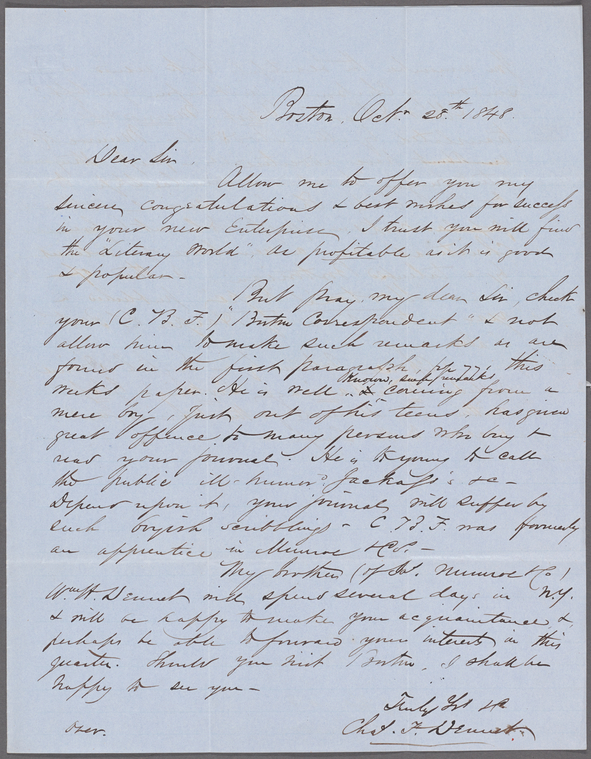 Boston. Octr 28th 1848.
Dear Sir.
Allow me to offer you my
sincere congratulations & best wishes for success
in your new Enterprise. I trust you will find
the "Literary World" as profitable as it is good
& popular -
But pray, my dear Sir, check
your (C. B. F.) "Boston Correspondent" & not
allow him to make such remarks as are
found in the first paragraph, pp 77, this
weeks paper. He is well known, & such remarks coming from a
mere boy, just out of his teens, has given
great offence to many persons who buy &
read your Journal. He is to young to call
the public ill-humor'd Jackass's &c -
Depend upon it, your journal will suffer by
such boyish scribblings - C. B. F. was formerly
an apprentice in Munroe & Co. -
My brother (of Js. Munroe & Co)
Wm H. Dennet will spend several days in N.Y.
& will be happy to make your acquaintance &
perhaps be able to forward your interests in this
quarter. Should you visit Boston, I shall be
happy to see you -
Truly Yrs &c
Chas. F. Dennet.
over.